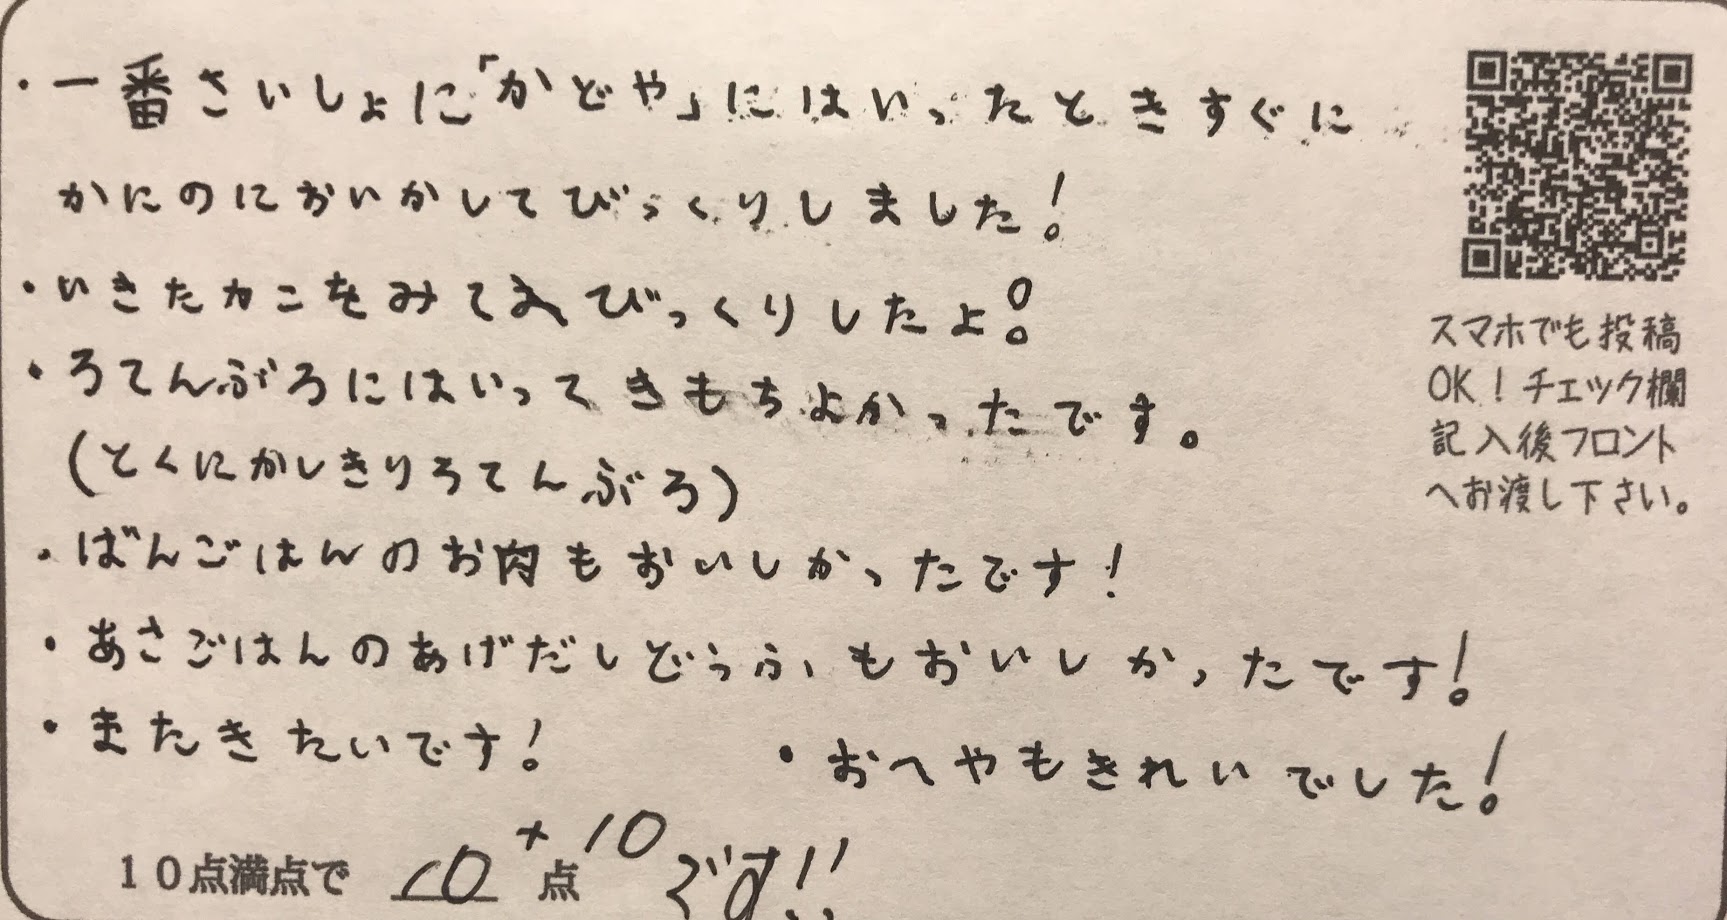 ・一番さいしょに「かどや」にはいったときすぐに
かにのにおいかしてびっくりしました!
・いきたカニをみてびっくりしたよ!
・ろてんぶろにはいってきもちよかったです。
(とくにかしきりろてんぶろ)
・ばんごはんのお肉もおいしかったです!
・あさごはんのあげだしどうふもおいしかったです!
・またきたいです!
・おへやもきれいでした!
10点満点で 10点+10です!!
スマホでも投稿
OK!チェック欄
記入後フロント
へお渡し下さい。